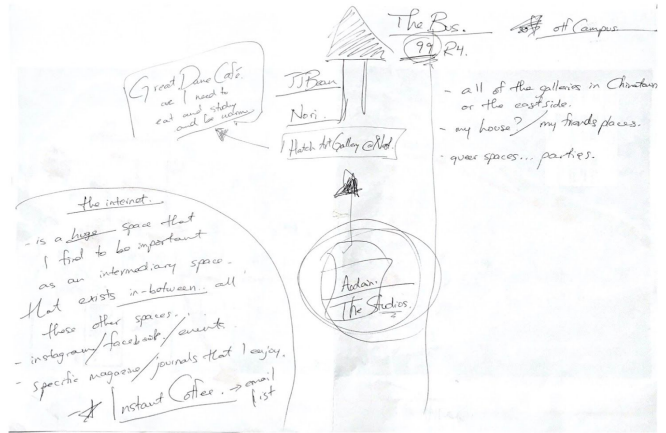 The Bus.
99 R4.
off Campus.
- all of the galleries in Chinatown
or the eastside.
- my house? / my friends places.
- queer spaces... parties.
Great Dane Café.
we I need to
eat and study
and be warm.
JJ Bean
Nori.
Hatch Art Gallery @ Nest.
Audain.
The Studios.
the internet.
- is a huge space that
I find to be important
as an intermediary space.
that exists in-between all
these other spaces...
- instagram / facebook / events.
- specific magazine / journals that I enjoy.
Instant Coffee. → email
list